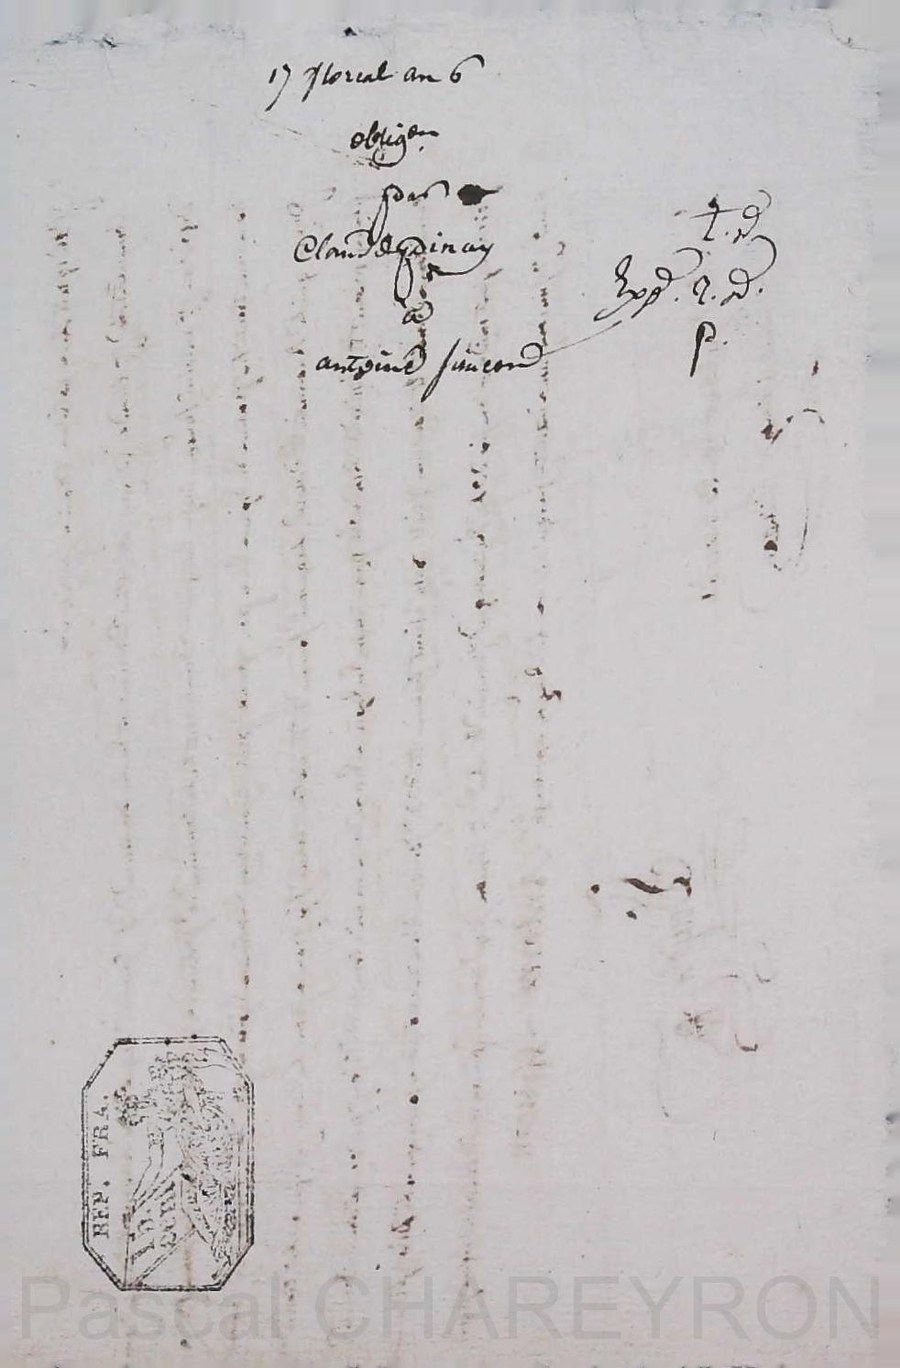 17 floreal an 6
obligon
par
Claude Epinay
a
antoine simeond
2. d
Expd. 2. d.
p.
REP. FRA.
Pascal CHAREYRON